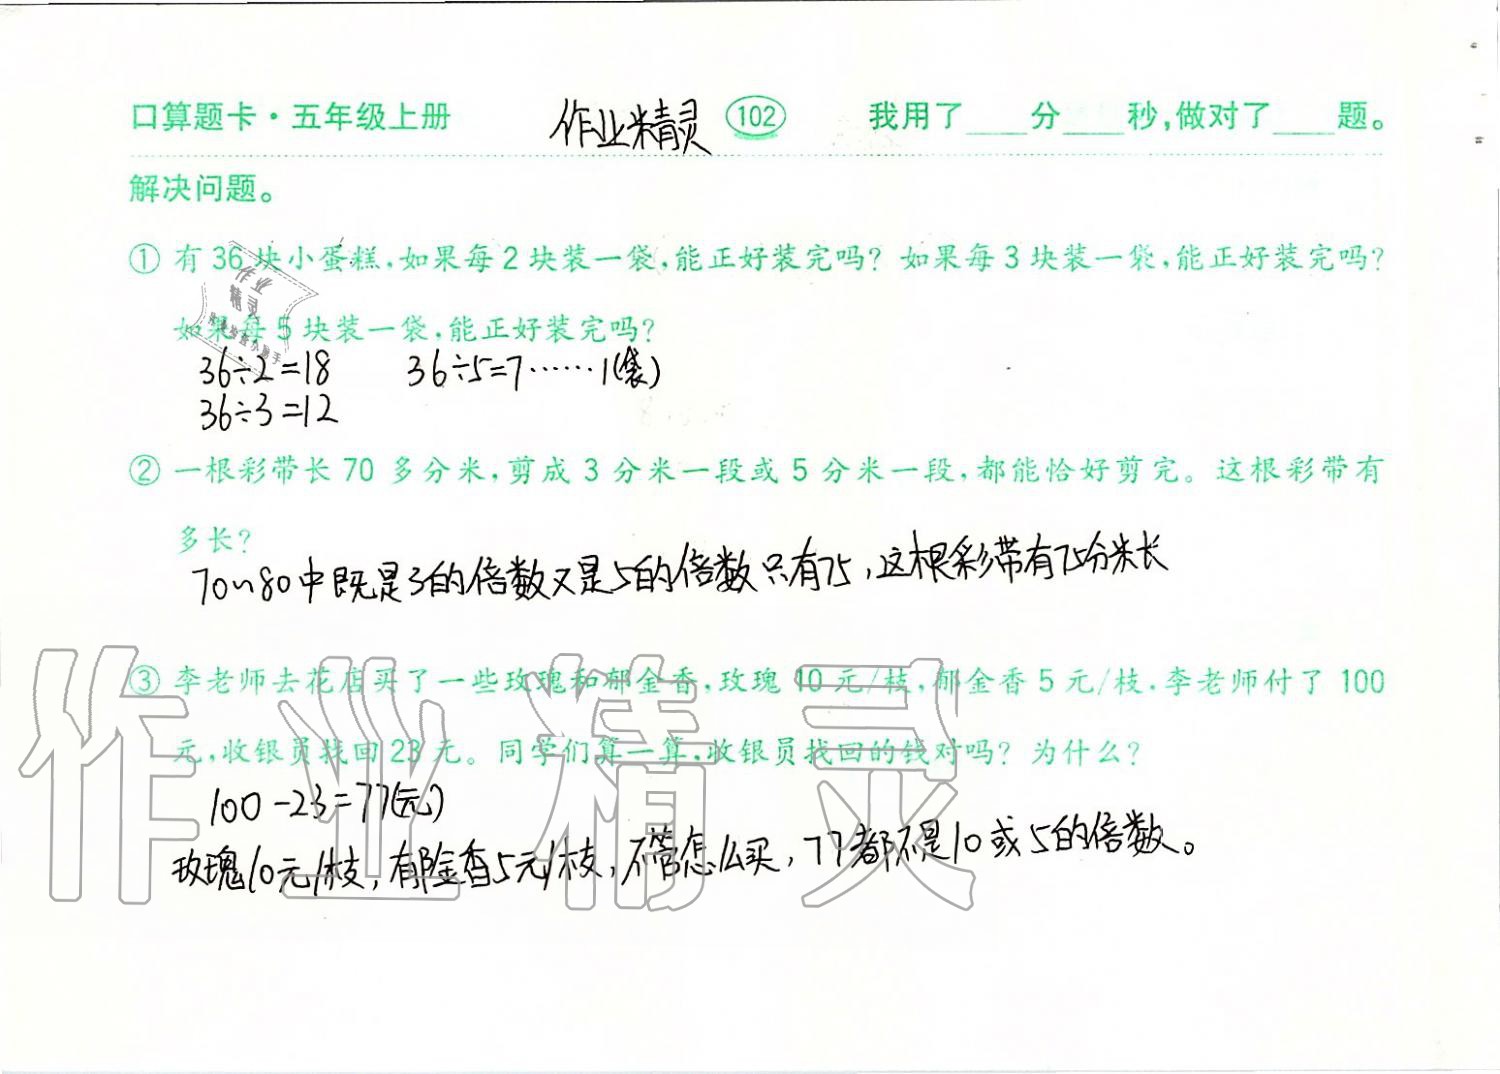 口算题卡·五年级上册 作业精灵 102 我用了____分____秒,做对了____题。
解决问题。
① 有36块小蛋糕,如果每2块装一袋,能正好装完吗? 如果每3块装一袋,能正好装完吗?
如果每5块装一袋,能正好装完吗?
作业
精灵
36÷2=18 36÷5=7……1(袋)
36÷3=12
② 一根彩带长70多分米,剪成3分米一段或5分米一段,都能恰好剪完。这根彩带有
多长?
70~80中既是3的倍数又是5的倍数只有75,这根彩带有75分米长
③ 李老师去花店买了一些玫瑰和郁金香,玫瑰10元/枝,郁金香5元/枝,李老师付了100
元,收银员找回23元。同学们算一算,收银员找回的钱对吗? 为什么?
100-23=77(元)
玫瑰10元/枝,郁金香5元/枝,不管怎么买,77都不是10或5的倍数。
作业精灵